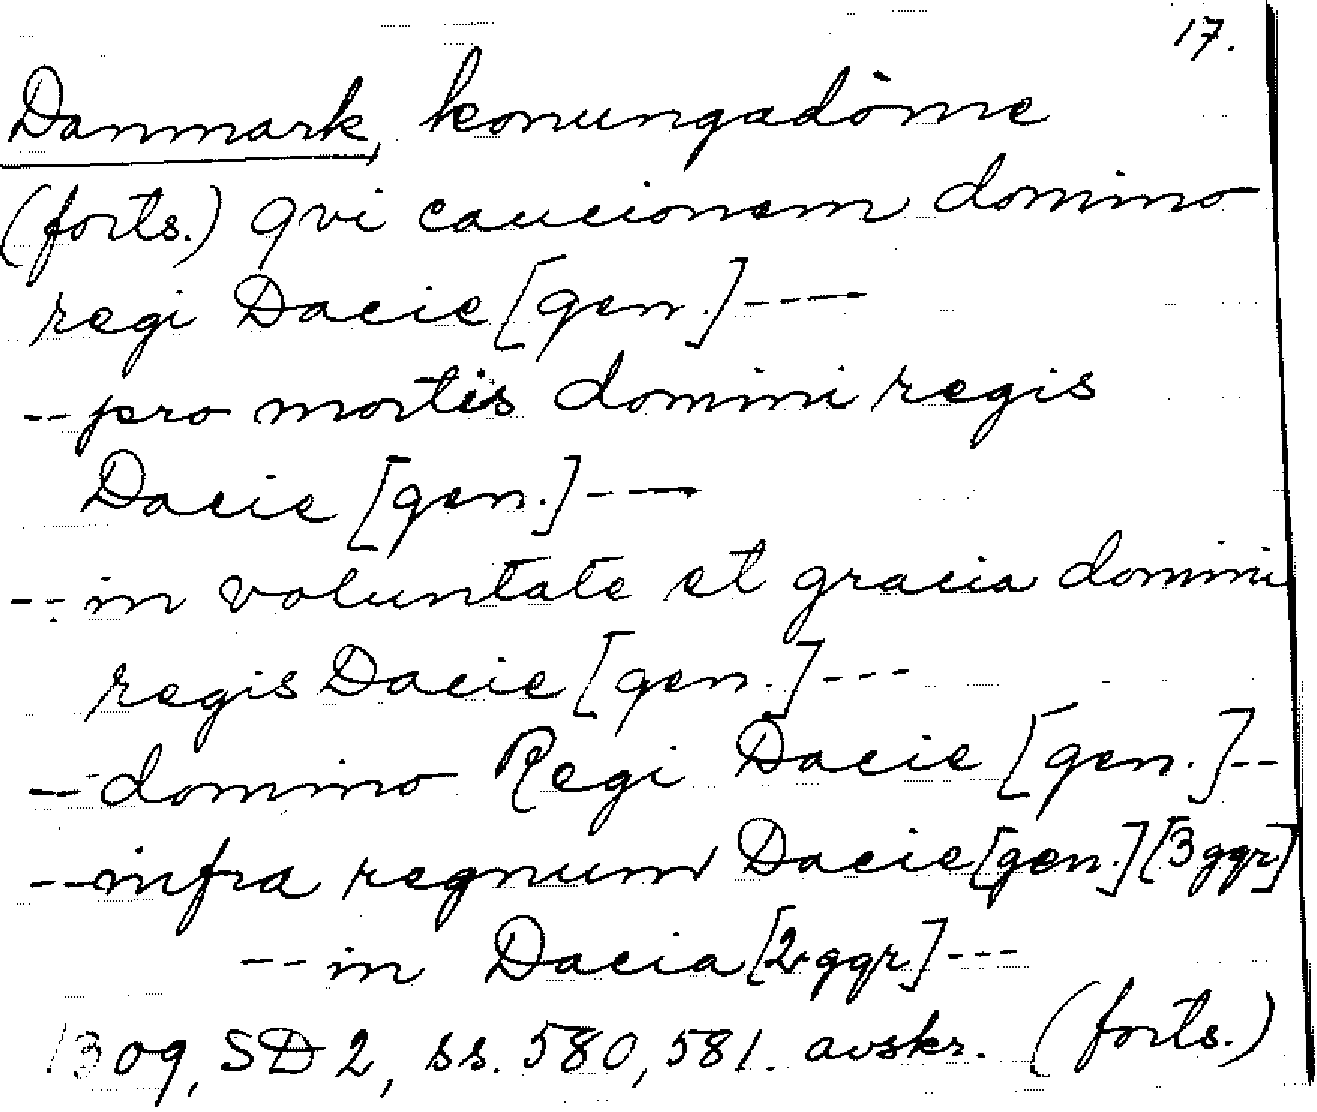 17.
Danmark, konungadöme
(forts.) qvi caucionem domino
regi Dacie [gen.] ----
-- pro mortis domini regis
Dacie [gen.] ---
-- in voluntate et gracia domini
regis Dacie [gen.] ---
-- domino Regi Dacie [gen.] --
-- infra regnum Dacie [gen.] [3 ggr]
-- in Dacia [2 ggr] ---
1309, SD 2, ss. 580, 581. avskr. (forts.)